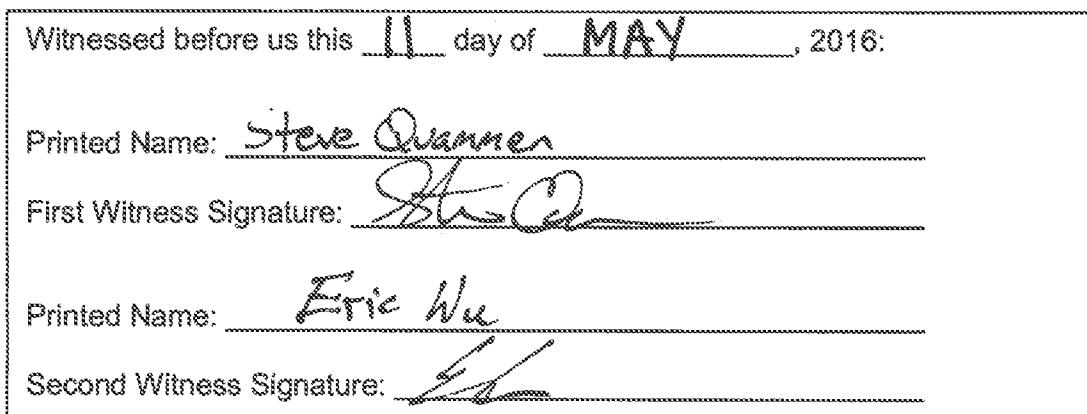 Witnessed before us this 11 day of MAY, 2016:
Printed Name: Steve Quammen
First Witness Signature:
Printed Name: Eric Wu
Second Witness Signature: